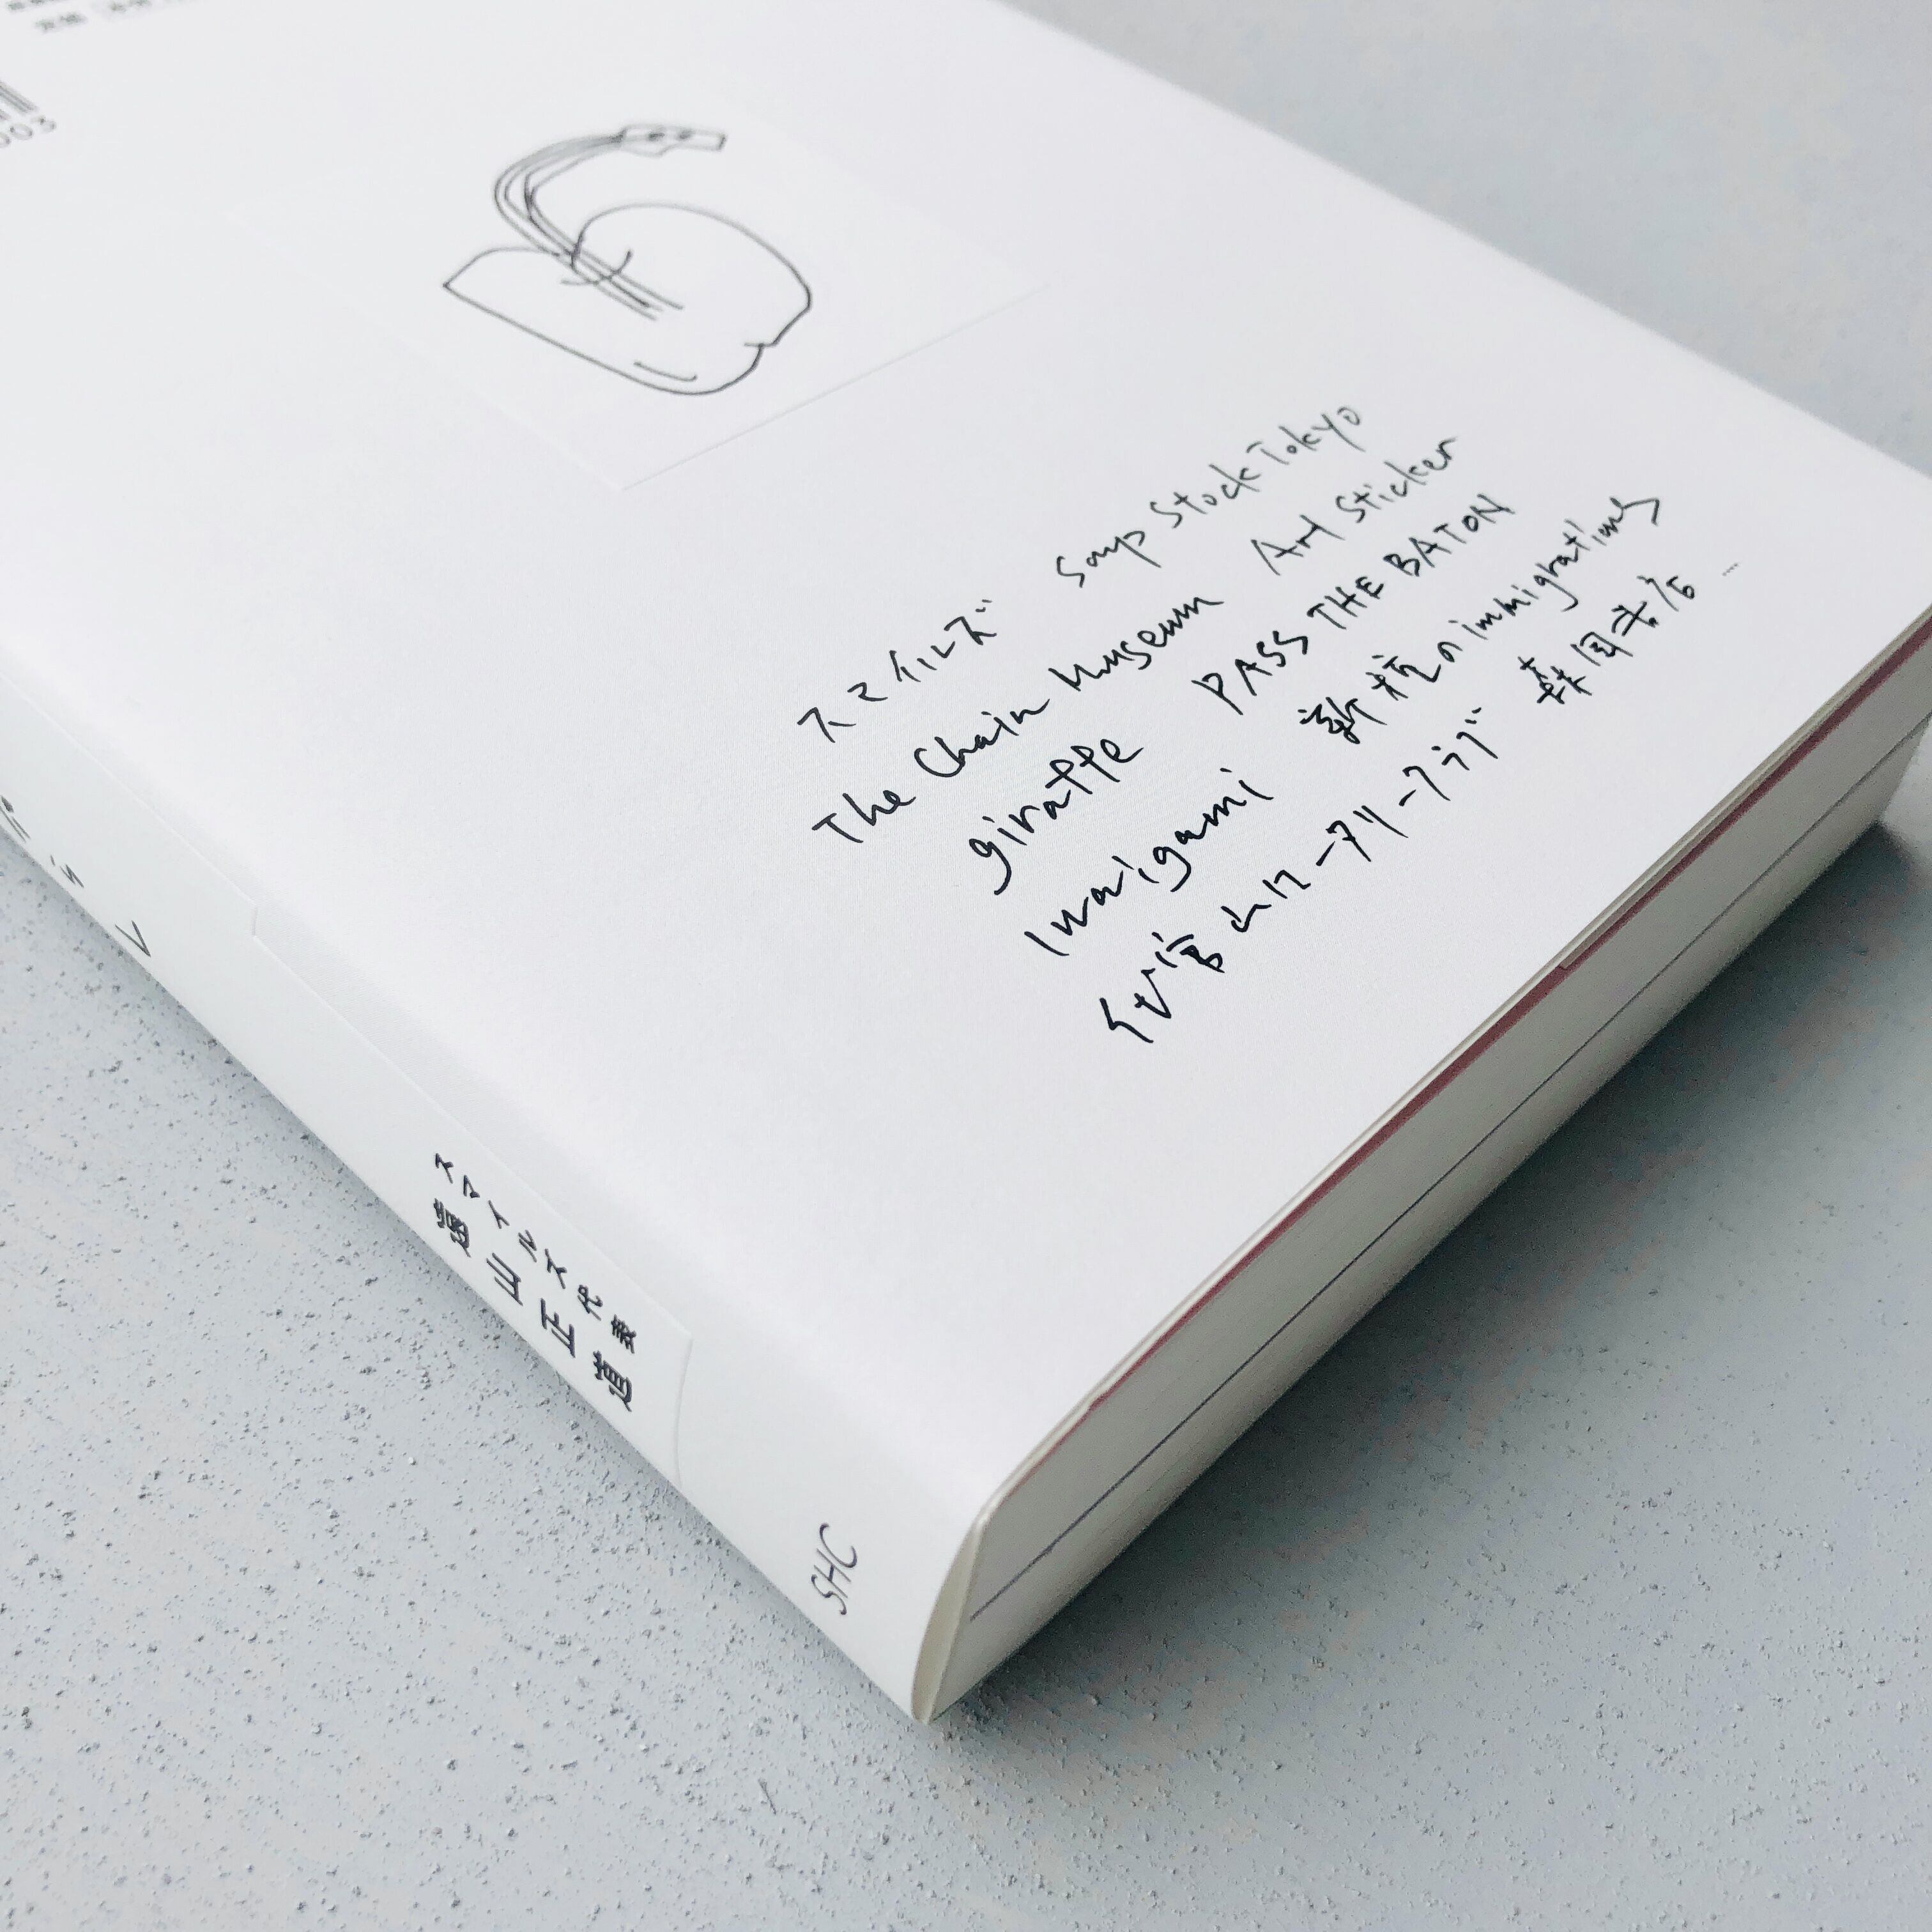 003
スマイルズ Soup Stock Tokyo
The Chain Museum Art Sticker
giraffe PASS THE BATON
iwaigami 新種のimmigrations
代官山ロータリークラブ 森岡書店 …
スマイルズ代表
遠山正道
SHC